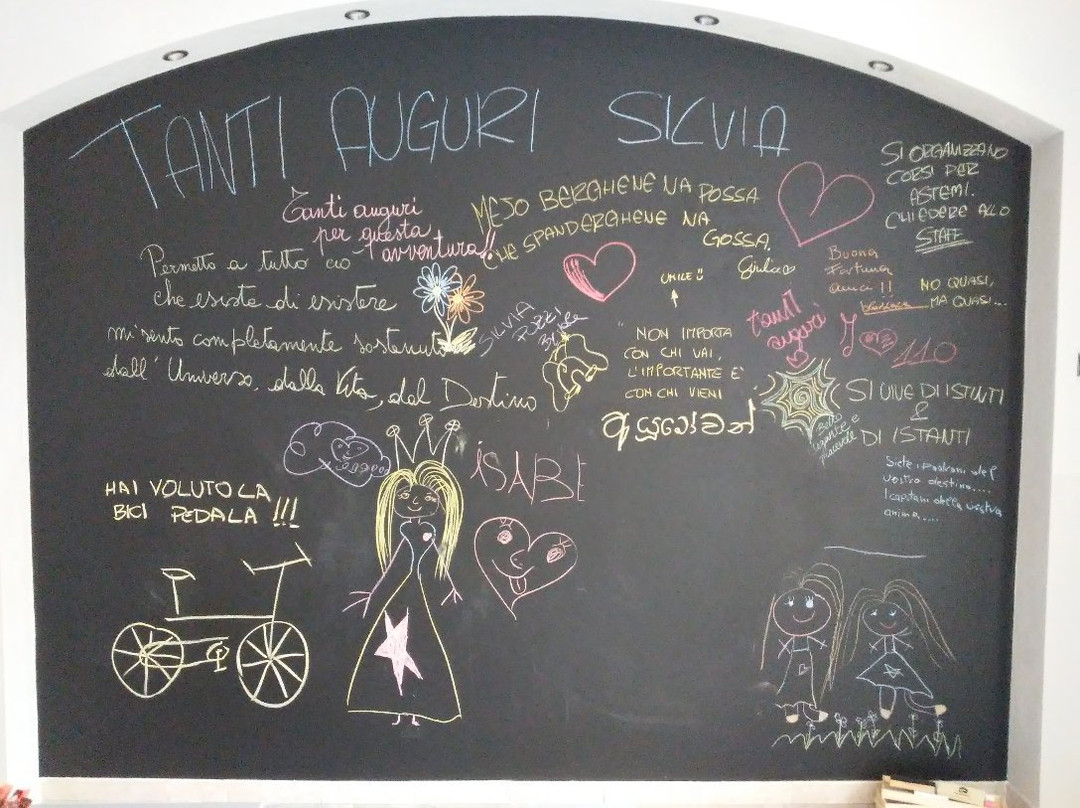 TANTI AUGURI SILVIA
Tanti auguri
per questa
avventura!!
MEJO BERGHENE NA POSSA
CHE SPANDERGHENE NA
GOSSA.
SI ORGANIZZANO
CORSI PER
ASTEMI.
CHIEDERE ALLO
STAFF
Permetto a tutto ciò
che esiste di esistere
mi sento completamente sostenuto
dall'Universo, dalla Vita, dal Destino
SILVIA
UMILE
Giulia
Buona
Fortuna
NO QUASI,
MA QUASI...
tanti
auguri
" NON IMPORTA
CON CHI VAI,
L'IMPORTANTE E'
CON CHI VIENI
I
110
SI VIVE DI ISTINTI
&
DI ISTANTI
Bello
elegante e
piacevole
Siete i padroni del
vostro destino....
I capitani della vostra
anima....
ISABE
HAI VOLUTO LA
BICI PEDALA !!!